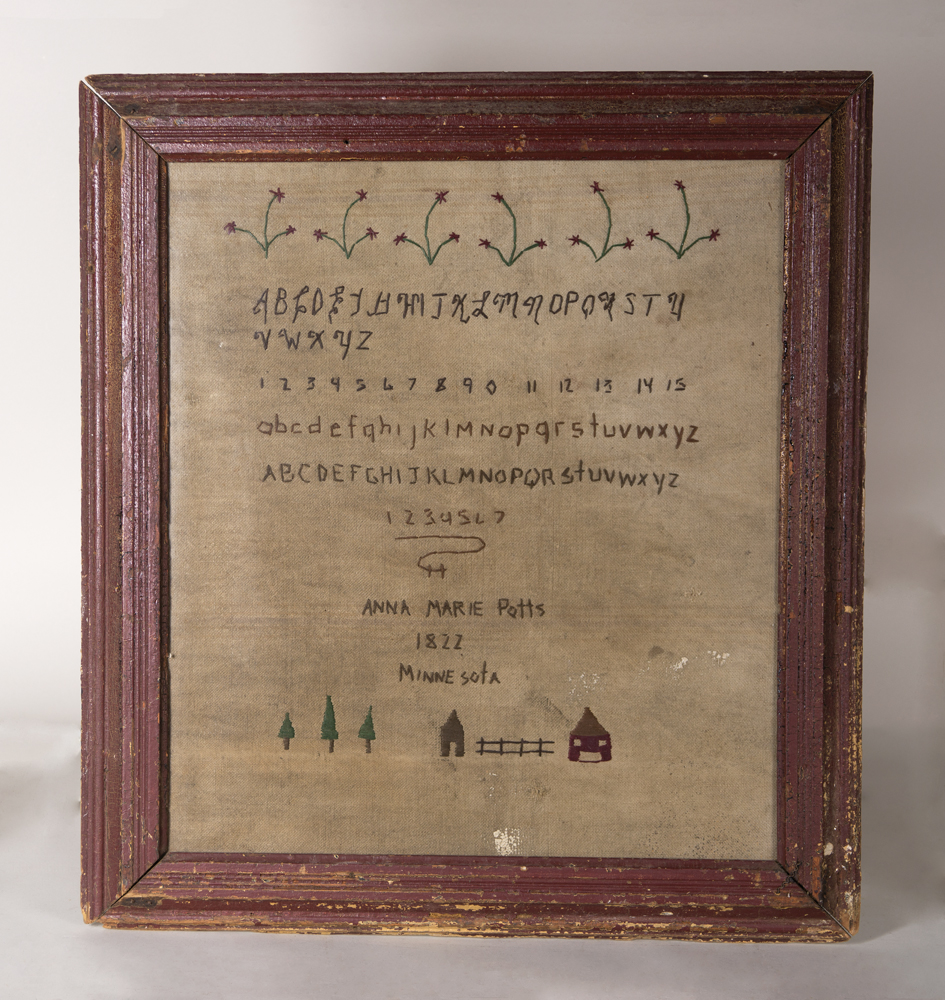 ABCDEFGHIJKLMNOPQRSTU
VWXYZ
1 2 3 4 5 6 7 8 9 0 11 12 13 14 15
abcdefghijklMNopqrstuvwxyz
ABCDEFGHIJKLMNOPQRStuvwxyz
1234567
ANNA MARIE Potts
1822
MINNE sotA